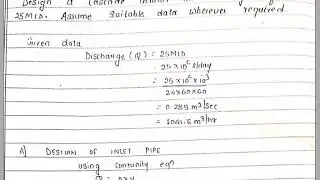 Design a cascade
25MLD. Assume Suitable data wherever required.
Given data
Discharge (Q) = 25MLD
= 25×10⁶ l/day
= 25×10⁶×10⁻³
24×60×60
= 0.289 m³/Sec
m³/hr
A] DESIGN OF INLET PIPE
Using Contunity eqⁿ